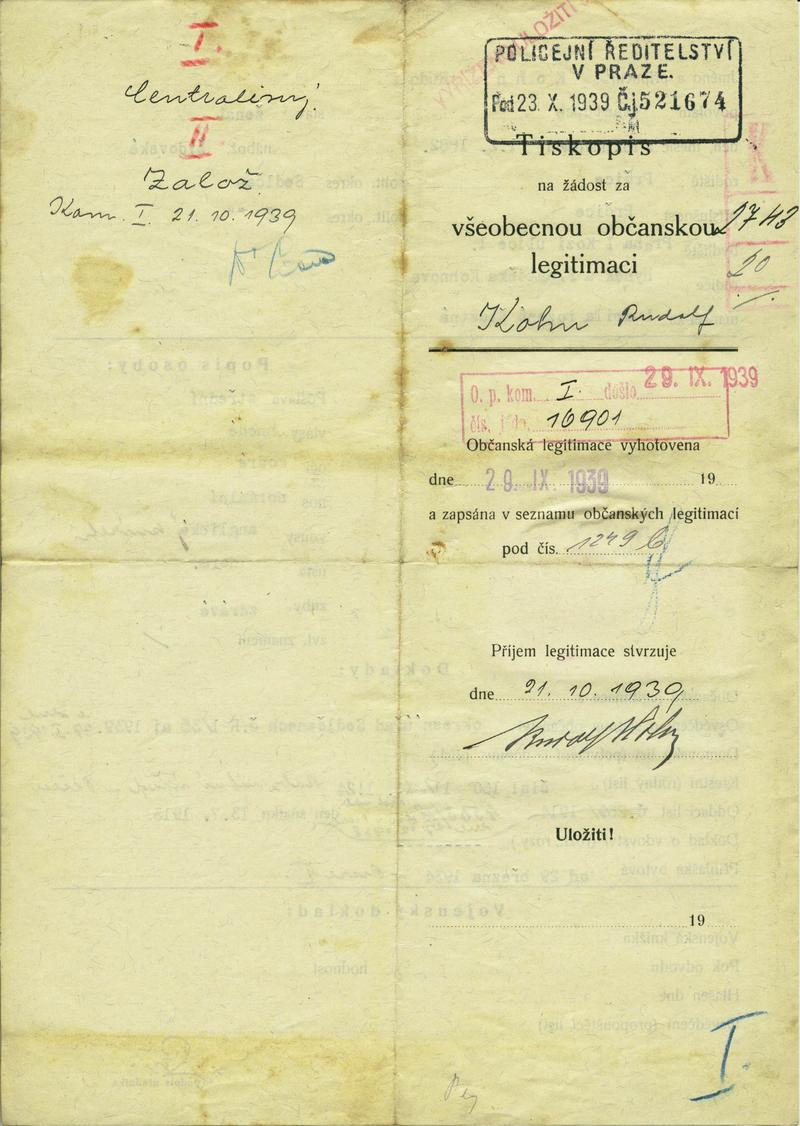 I.
Centralisuj.
II
Založ
Kom. I. 21. 10. 1939
ULOŽITI
POLICEJNÍ ŘEDITELSTVÍ
V PRAZE.
Pod 23. X. 1939 Čj 521674
Tiskopis
na žádost za
všeobecnou občanskou 2743
legitimaci
20
Kohn Rudolf
O. p. kom. I. došlo 29. IX. 1939
čís. jedn. 16901
Občanská legitimace vyhotovena
dne 29. IX 1939 19
a zapsána v seznamu občanských legitimací
pod čís. 1249
Příjem legitimace stvrzuje
dne 21. 10. 1939
Rudolf Kohn
Uložiti!
19
I.